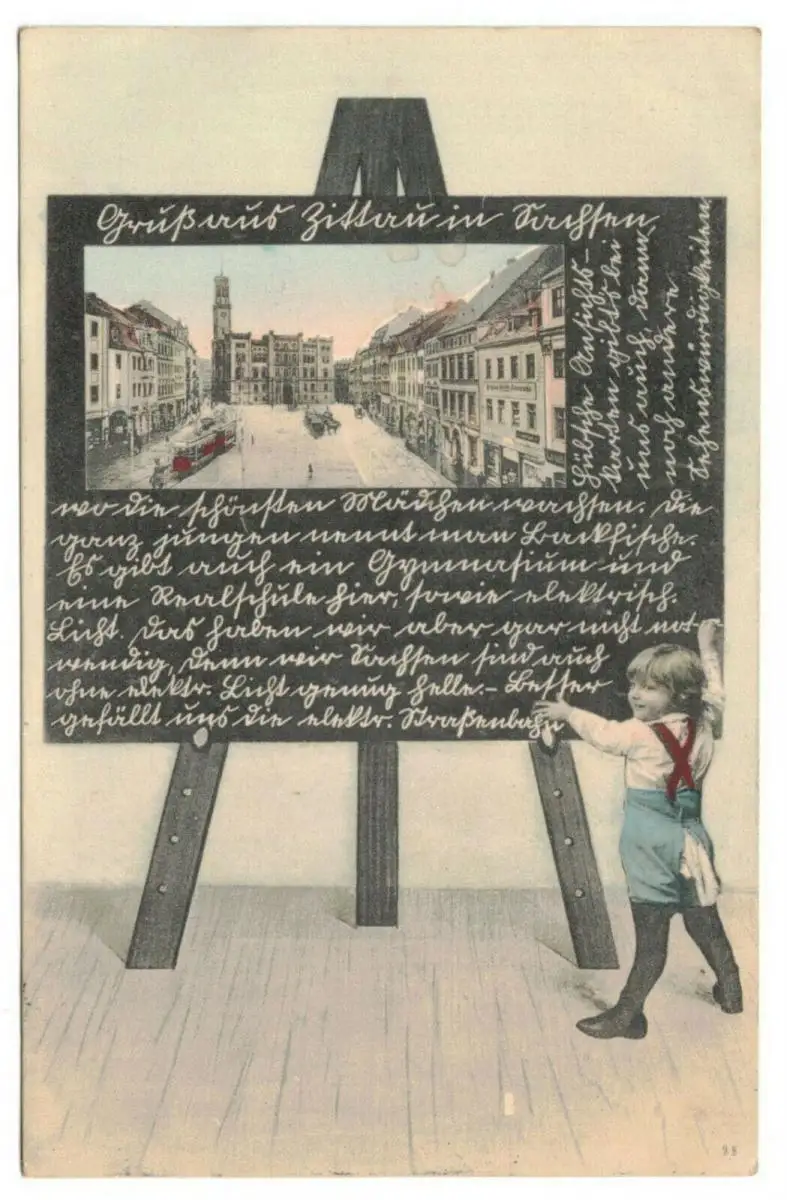 Gruß aus Zittau in Sachsen,
wo die schönsten Mädchen wachsen. Die
ganz jungen nennt man Backfische.
Es gibt auch ein Gymnasium und
eine Realschule hier, sowie elektrisch.
Licht. Das haben wir aber gar nicht not-
wendig, denn wir Sachsen sind auch
ohne elektr. Licht genug helle.– Besser
gefällt uns die elektr. Straßenbahn
Hübsche Ansichts-
karten gibts bei
uns auch, dann
noch andere
Sehenswürdigkeiten